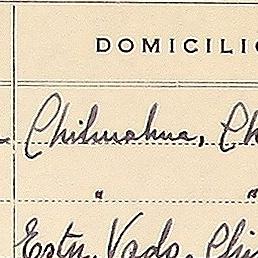 DOMICILIO
Chihuahua, Ch
" "
Estn. Vado, Chi